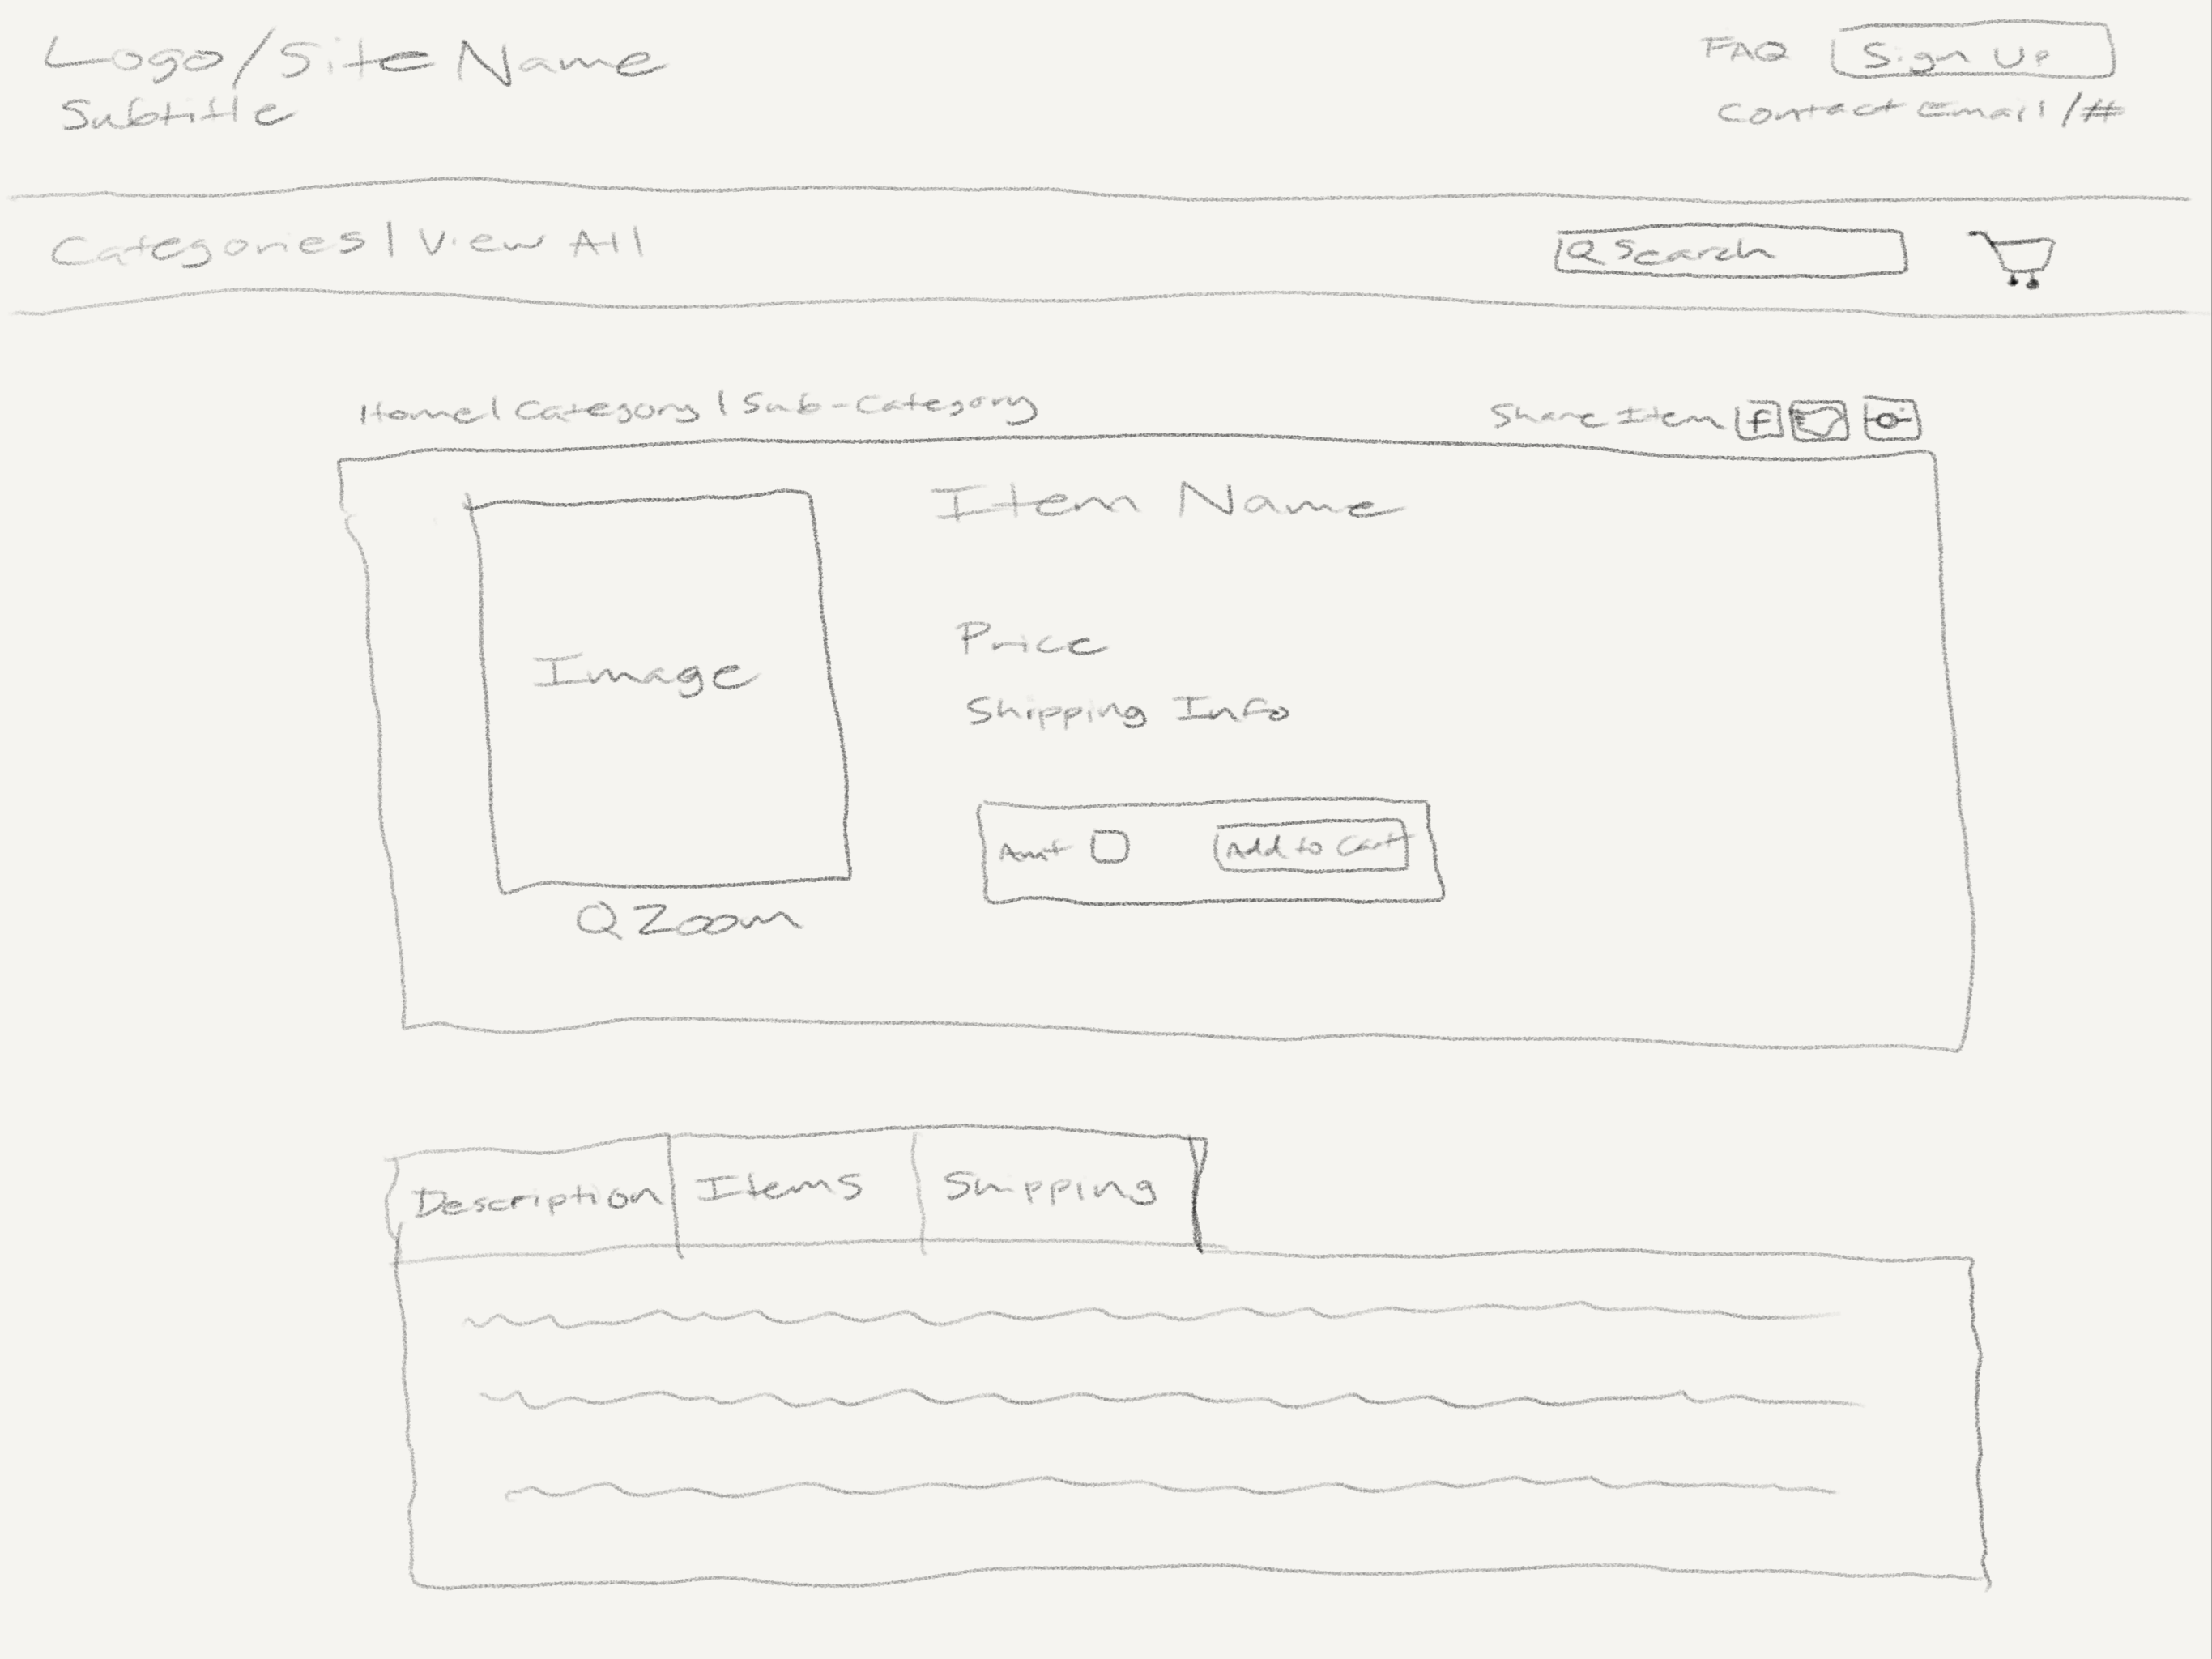 Logo/Site Name
Subtitle
FAQ Sign Up
Contact Email/#
Categories | View All
Search
Home | Category | Sub-Category
Share Item f
Item Name
Image
Price
Shipping Info
Amt Add to Cart
Zoom
Description Items Shipping